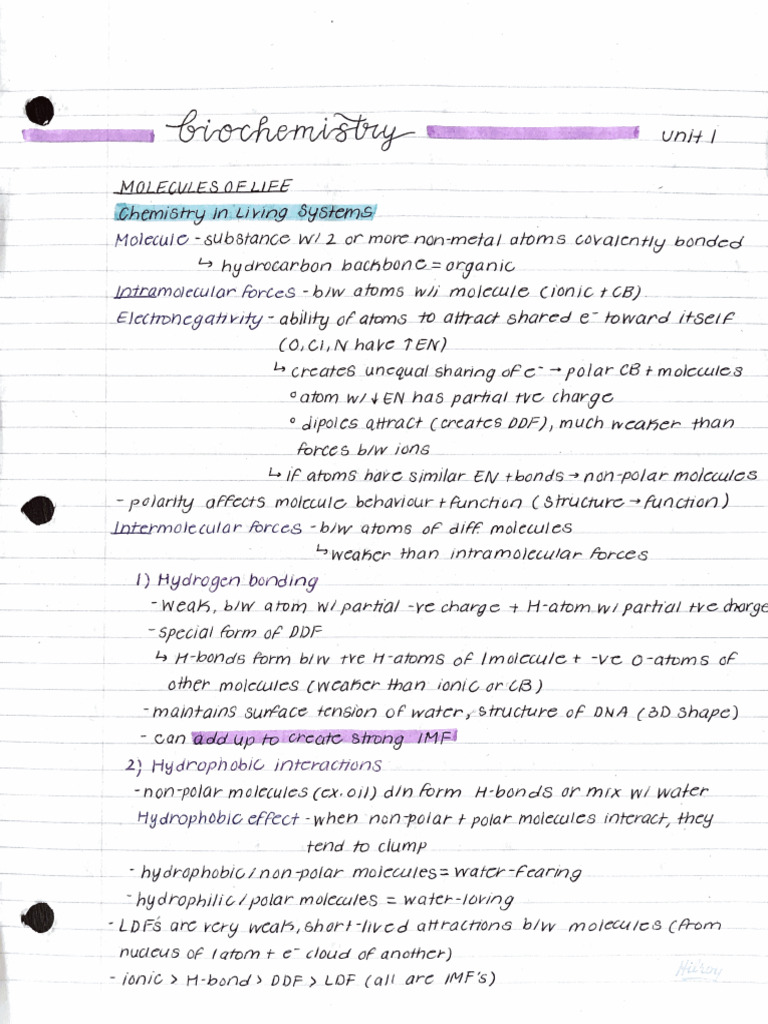 biochemistry unit 1
MOLECULES OF LIFE
Chemistry in Living Systems
Molecule - substance w/ 2 or more non-metal atoms covalently bonded
↳ hydrocarbon backbone = organic
Intramolecular forces - b/w atoms w/i molecule (ionic + CB)
Electronegativity - ability of atoms to attract shared e⁻ toward itself
(O, Cl, N have ↑EN)
↳ creates unequal sharing of e⁻ → polar CB + molecules
° atom w/ ↓EN has partial +ve charge
° dipoles attract (creates DDF), much weaker than
forces b/w ions
↳ if atoms have similar EN + bonds → non-polar molecules
- polarity affects molecule behaviour + function (structure → function)
Intermolecular forces - b/w atoms of diff. molecules
↳ weaker than intramolecular forces
1) Hydrogen bonding
- weak, b/w atom w/ partial -ve charge + H-atom w/ partial +ve charge
- special form of DDF
↳ H-bonds form b/w +ve H-atoms of 1 molecule + -ve O-atoms of
other molecules (weaker than ionic or CB)
- maintains surface tension of water, structure of DNA (3D shape)
- can add up to create strong IMF
2) Hydrophobic interactions
- non-polar molecules (ex. oil) d/n form H-bonds or mix w/ water
Hydrophobic effect - when non-polar + polar molecules interact, they
tend to clump
- hydrophobic/non-polar molecules = water-fearing
- hydrophilic/polar molecules = water-loving
- LDF's are very weak, short-lived attractions b/w molecules (from
nucleus of 1 atom + e⁻ cloud of another)
- ionic > H-bond > DDF > LDF (all are IMF's)
Hilroy